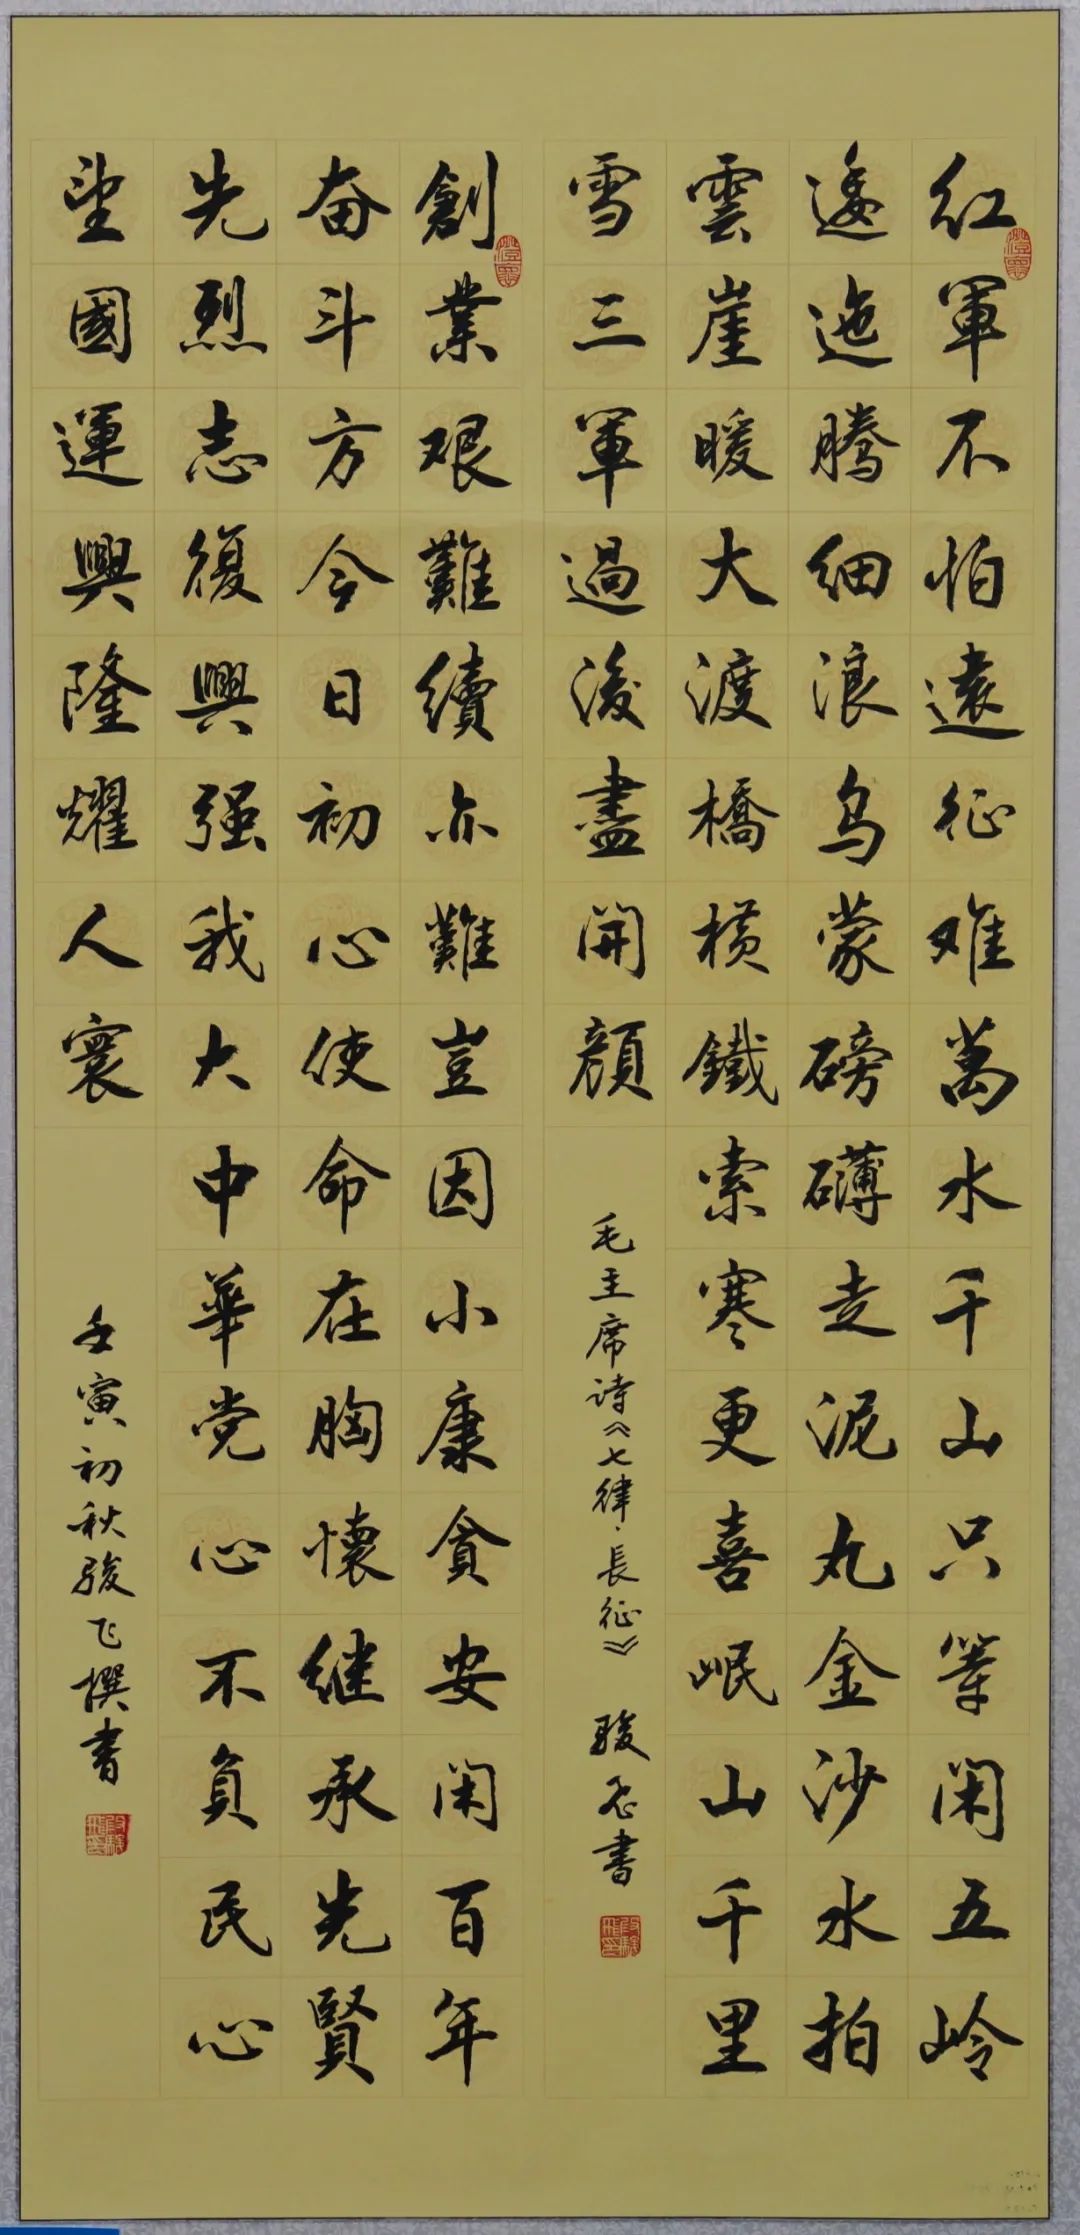 红軍不怕遠征难萬水千山只等闲五岭
逶迤腾细浪乌蒙磅礴走泥丸金沙水拍
雲崖暖大渡橋横鐵索寒更喜岷山千里
雪三軍過後盡開顔
毛主席诗《七律·長征》 骏飞書
創業艰難續亦難豈因小康貪安闲百年
奋斗方今日初心使命在胸懷继承先賢
先烈志復興强我大中華党心不負民心
望國運興隆耀人寰
壬寅初秋骏飞撰書